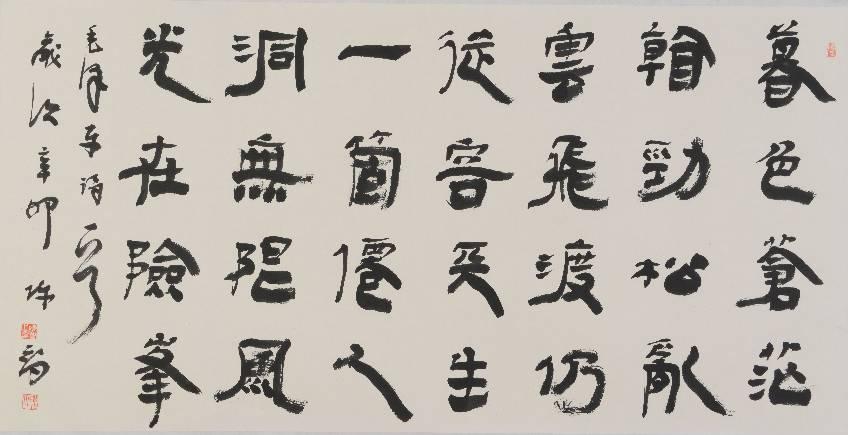 暮色蒼茫
看勁松亂
雲飛渡仍
從容天生
一箇僊人
洞無限風
光在險峯
毛澤东詩一首
歲次辛卯